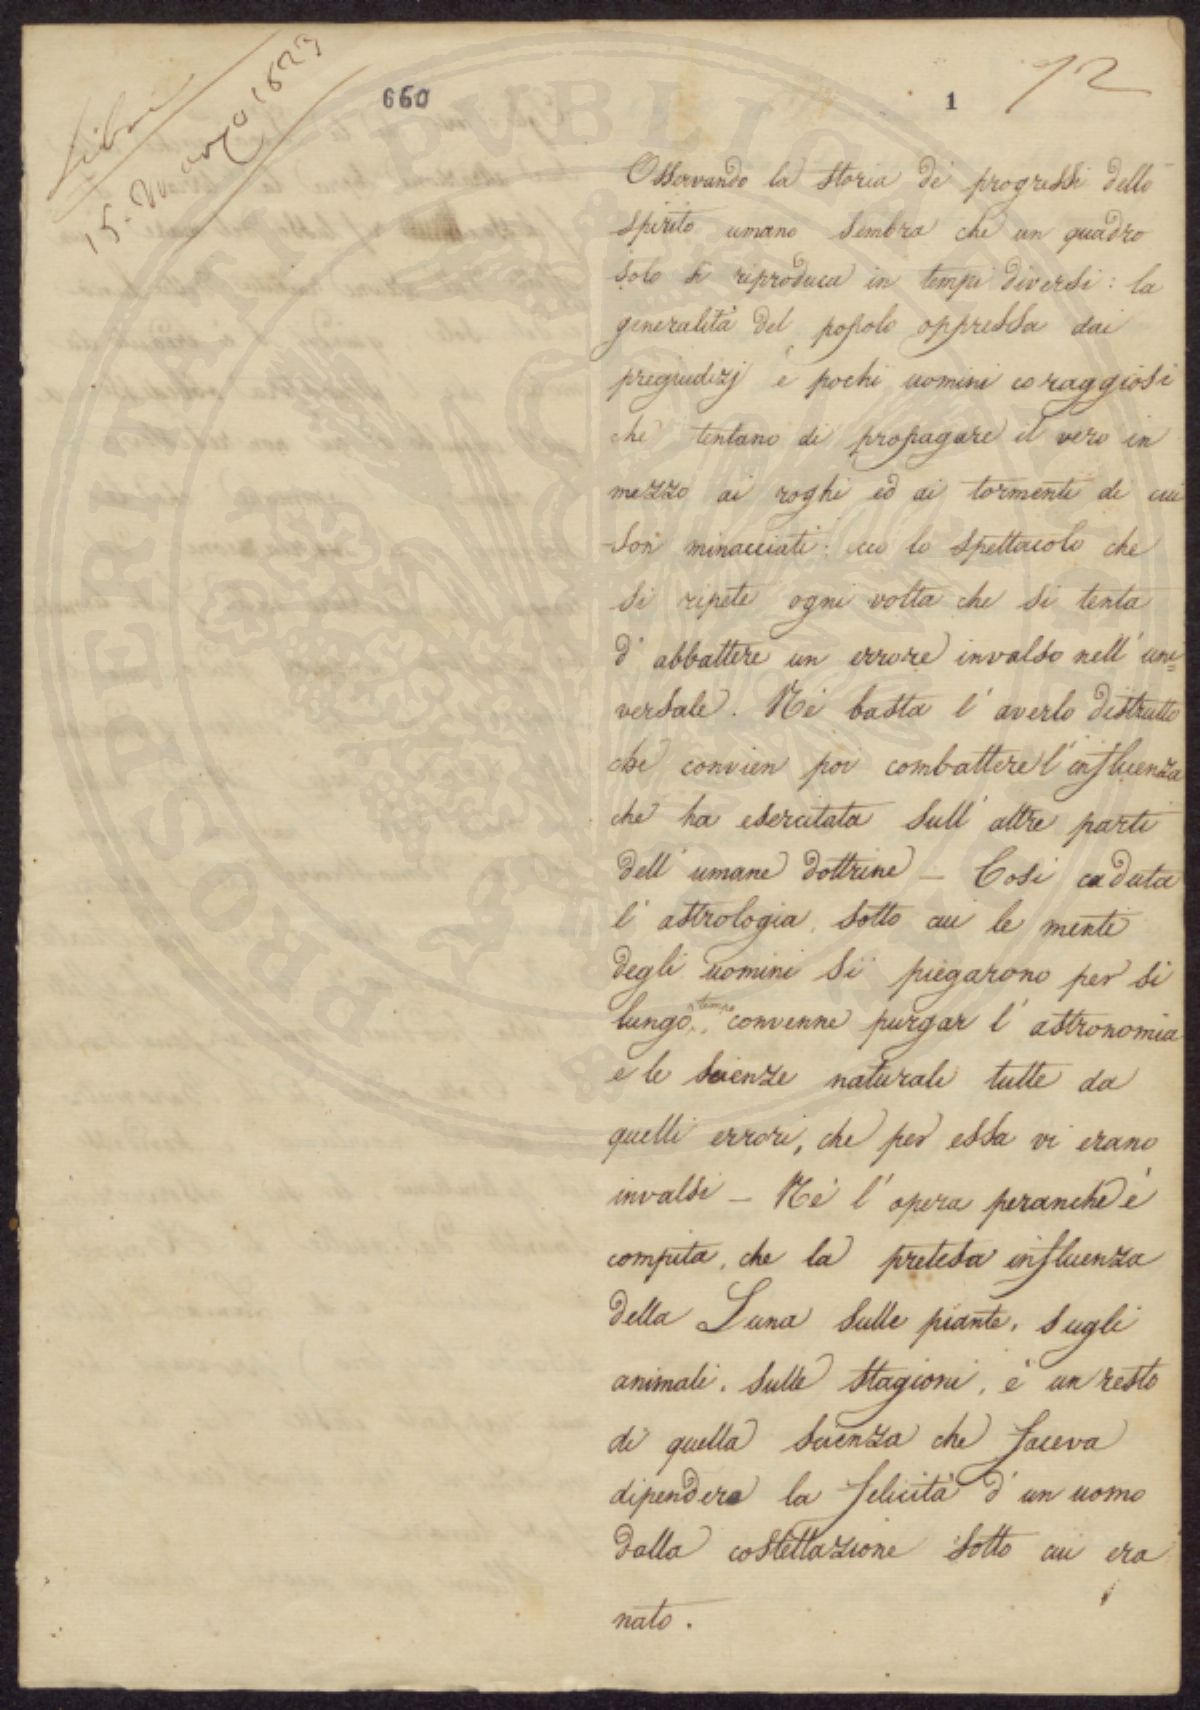 Libri
15. Marzo 1823
660
1
12
Osservando la storia de' progressi dello
spirito umano sembra che un quadro
solo si riproduca in tempi diversi: la
generalità del popolo oppressa dai
pregiudizj e pochi uomini coraggiosi
che tentano di propagare il vero in
mezzo ai roghi ed ai tormenti di cui
son minacciati: ecco lo spettacolo che
si ripete ogni volta che si tenta
d'abbattere un errore invalso nell'uni=
versale. Nè basta l'averlo distrutto
che convien poi combattere l'influenza
che ha esercitata sull'altre parti
dell'umane dottrine – Così caduta
l'astrologia, sotto cui le menti
degli uomini si piegarono per sì
lungo tempo, convenne purgar l'astronomia
e le scienze naturali tutte da
quelli errori, che per essa vi erano
invalsi – Nè l'opera peranche è
compita, che la pretesa influenza
della Luna sulle piante, sugli
animali, sulle stagioni, è un resto
di quella scienza che faceva
dipendere la felicità d'un uomo
dalla costellazione sotto cui era
nato.
PROSPERITATI PUBLICAE